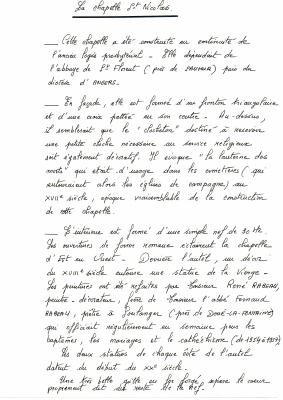 La chapelle St Nicolas.
— Cette chapelle a été construite en continuité de
l'ancien logis presbytéral – Elle dépendait de
l'abbaye de St Florent (près de SAUMUR) puis du
diocèse d'ANGERS.
— En façade, elle est formée d'un fronton triangulaire
et d'une croix pattée en son centre. Au-dessus,
il semblerait que le "clocheton" destiné à recevoir
une petite cloche nécessaire au service religieux
soit également décoratif. Il évoque "la lanterne des
morts" qui était d'usage dans les cimetières (qui
entouraient alors les églises de campagne) au
XVIIe siècle, époque vraisemblable de la construction
de cette chapelle.
— L'intérieur est formé d'une simple nef de 30 m2.
Des ouvertures de forme romane éclairent la chapelle
d'Est en Ouest – Derrière l'autel, un décor
du XVIIIe siècle entoure une statue de la Vierge –
Les peintures ont été refaites par Monsieur René RABEAU,
peintre-décorateur, frère de Monsieur l'abbé Fernand
RABEAU, prêtre à Soulanger (près de DOUÉ-LA-FONTAINE)
qui officiait régulièrement en semaine pour les
baptêmes, les mariages et le catéchisme (de 1954 à 1959)
Les deux statues de chaque côté de l'autel
datent du début du XXe siècle.
Une très belle grille en fer forgé, sépare le choeur
proprement dit du reste de la nef.